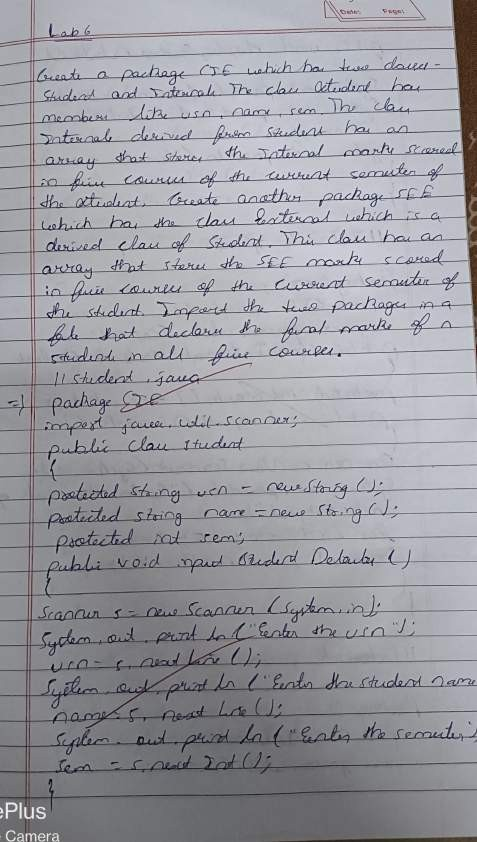 Date: Page:
Lab 6
Create a package CIE which has two classes-
Student and Internals. The class student has
members like usn, name, sem. The class
Internals derived from student has an
array that stores the Internal marks scored
in five courses of the current semester of
the student. Create another package SEE
which has the class External which is a
derived class of Student. This class has an
array that stores the SEE marks scored
in five courses of the current semester of
the student. Import the two packages in a
file that declares the final marks of n
students in all five courses.
// student.java
=> package CIE
import java.util.scanner;
public class student
{
protected string usn = new String ();
protected string name = new String ();
protected int sem;
public void input Student Details ()
{
Scanner s = new Scanner (System.in);
System.out.println ("Enter the usn");
usn = s.next Line ();
System.out.println ("Enter the student name
name = s.next Line ();
System.out.println ("Enter the semester
sem = s.next Int ();
}
ePlus
Camera